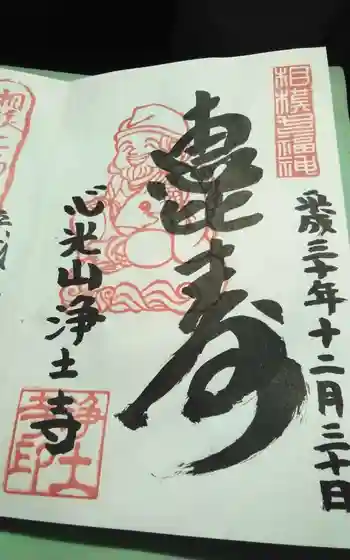 相模七福神
平成三十年十二月三十日
恵比寿
心光山浄土寺
浄土寺印
相模